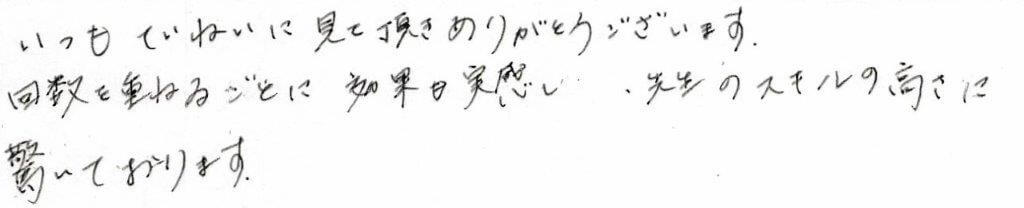 いつもていねいに見て頂きありがとうございます.
回数を重ねるごとに 効果も実感し 、先生のスキルの高さに
驚いております.